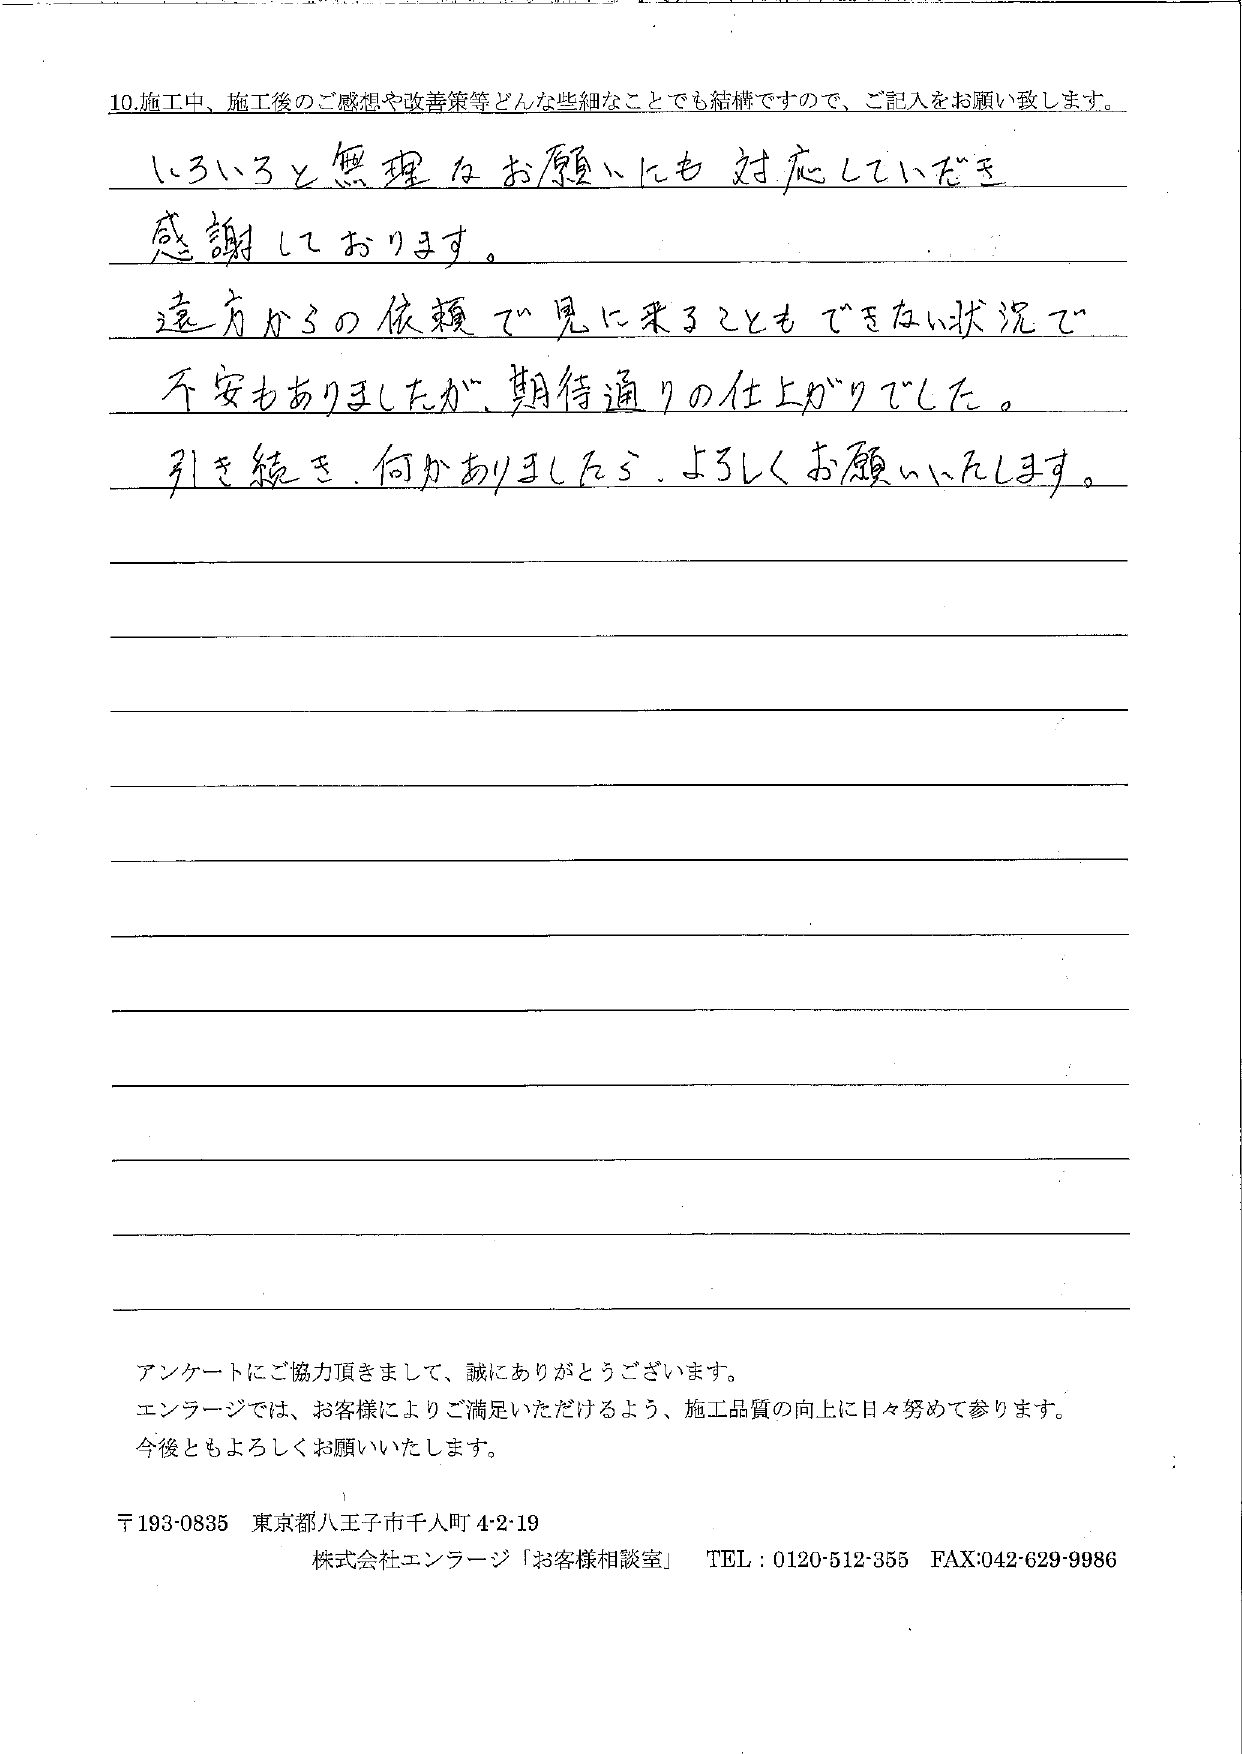 10.施工中、施工後のご感想や改善策等どんな些細なことでも結構ですので、ご記入をお願い致します。
いろいろと無理なお願いにも対応していだき
感謝しております。
遠方からの依頼で見に来ることもできない状況で
不安もありましたが、期待通りの仕上がりでした。
引き続き、何かありましたら、よろしくお願いいたします。
アンケートにご協力頂きまして、誠にありがとうございます。
エンラージでは、お客様によりご満足いただけるよう、施工品質の向上に日々努めて参ります。
今後ともよろしくお願いいたします。
〒193-0835 東京都八王子市千人町 4-2-19
株式会社エンラージ「お客様相談室」 TEL：0120-512-355 FAX:042-629-9986